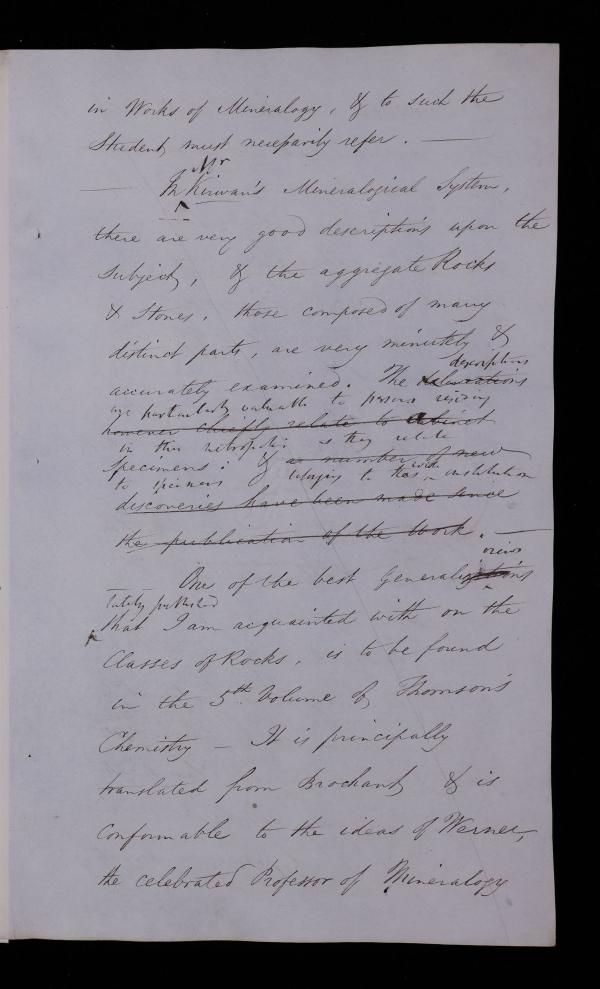 in Works of Mineralogy, & to such the
Student must necessarily refer. —
Mr
— In Kirwan's Mineralogical System,
there are very good descriptions upon the
Subject, & the aggregate Rocks
& Stones, those composed of many
distinct parts, are very minutely &
descriptions
accurately examined. The
are particularly valuable to persons residing
however chiefly relate to Cabinet
in this metropolis: as they relate
Specimens: & a number of new
to specimens belonging to this institution
discoveries have been made since
the publication of the Work. —
views
— One of the best general
lately published
that I am acquainted with on the
Classes of Rocks, is to be found
in the 5th Volume of Thomson's
Chemistry — It is principally
translated from Brochant & is
conformable to the ideas of Werner,
the celebrated Professor of Mineralogy